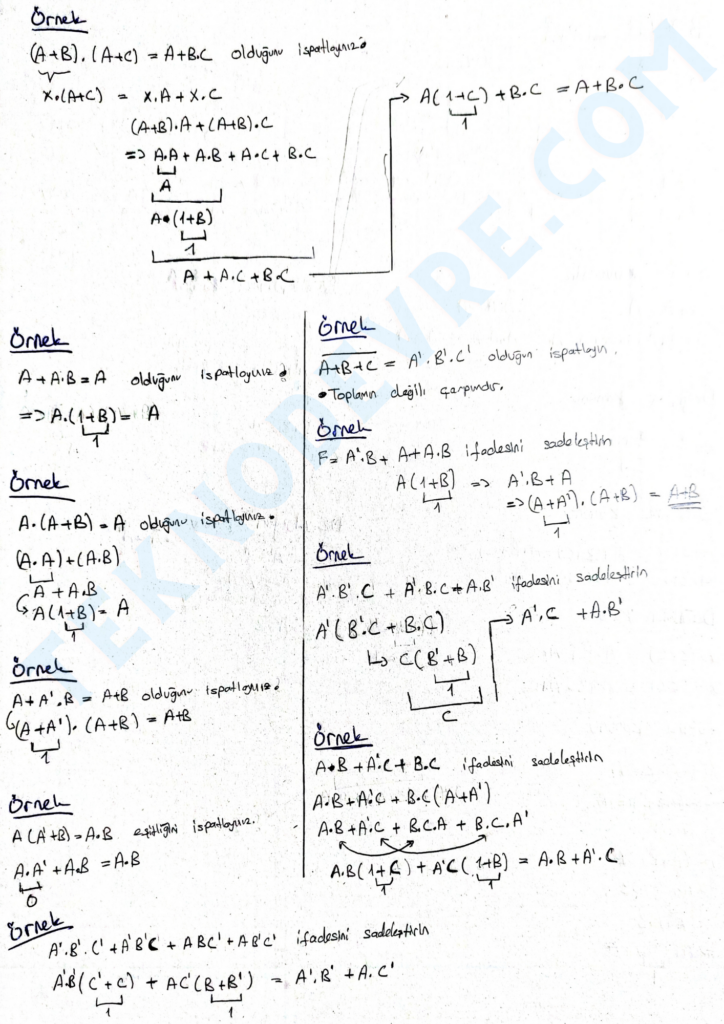 Örnek
(A+B).(A+C) = A+B.C olduğunu ispatlayınız.
X.(A+C) = X.A + X.C
(A+B).A + (A+B).C
=> A.A + A.B + A.C + B.C
A
A.(1+B)
1
A + A.C + B.C
A(1+C) + B.C = A+B.C
1
Örnek
A + A.B = A olduğunu ispatlayınız.
=> A.(1+B) = A
1
Örnek
A.(A+B) = A olduğunu ispatlayınız.
(A.A)+(A.B)
A + A.B
A(1+B) = A
1
Örnek
A + A'.B = A+B olduğunu ispatlayınız.
(A+A').(A+B) = A+B
1
Örnek
A(A'+B) = A.B eşitliğini ispatlayınız.
A.A' + A.B = A.B
0
Örnek
A̅+̅B̅+̅C̅ = A'.B'.C' olduğun ispatlayın.
• Toplamın değili çarpımdır.
Örnek
F = A'.B + A + A.B ifadesini sadeleştirin
A(1+B) => A'.B + A
1
=> (A+A').(A+B) = A+B
1
Örnek
A'.B'.C + A'.B.C + A.B' ifadesini sadeleştirin
A'(B'.C + B.C)
↳ C(B'+B)
1
C
A'.C + A.B'
Örnek
A.B + A'.C + B.C ifadesini sadeleştirin
A.B + A'.C + B.C(A+A')
A.B + A'.C + B.C.A + B.C.A'
A.B(1+C) + A'C(1+B) = A.B + A'.C
1 1
Örnek
A'.B'.C' + A'B'C + ABC' + AB'C' ifadesini sadeleştirin
A'B'(C'+C) + AC'(B+B') = A'.B' + A.C'
1 1
TEKNODEVRE.COM